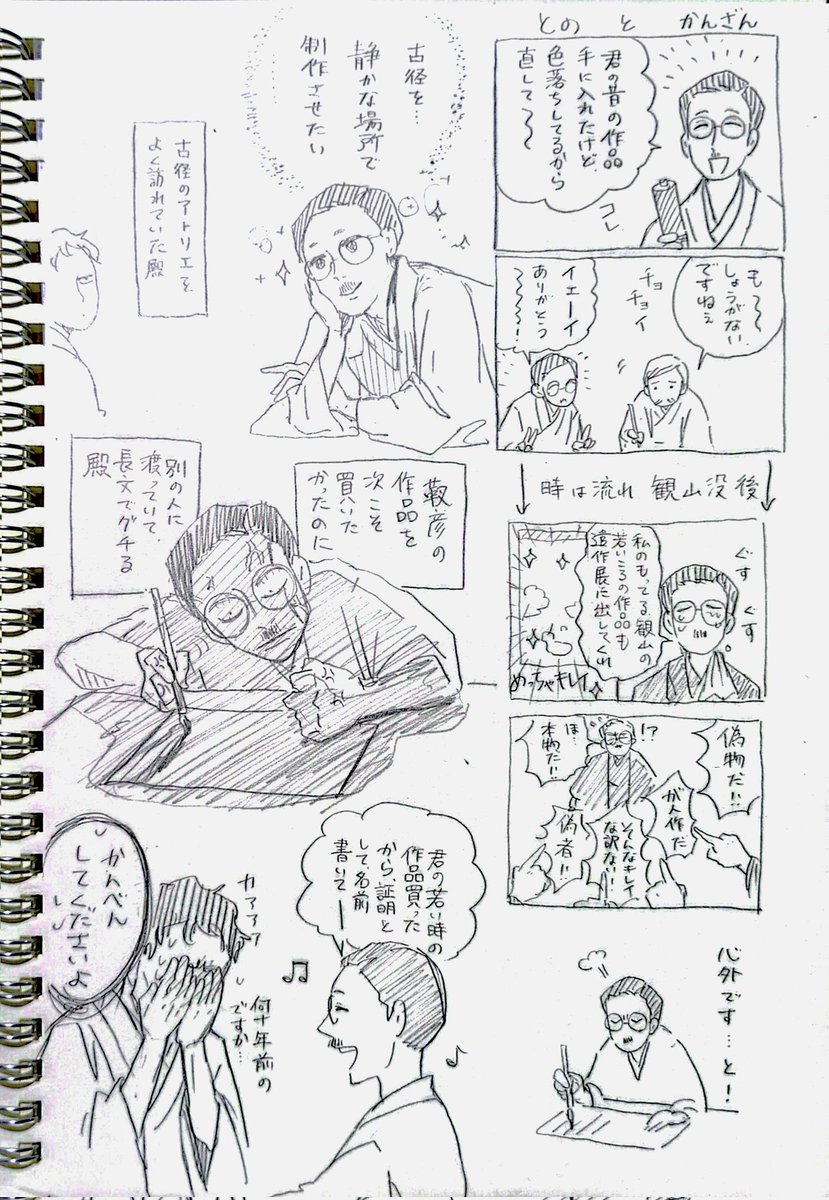 とのと かんざん
君の昔の作品
手に入れたけど、
色落ちしてるから
直して〜〜
コレ
も〜〜
しょうがない
ですねぇ
チョ
チョイ
イェーイ
ありがとう
〜〜！
時は流れ 観山没後
ぐす
ぐす
私のもってる観山の
若いころの作品も
遺作展に出してくれ
めっちゃキレイ
偽物だ!!
が人作だ
そんなキレイ
な訳ない！
偽者!!
!?
は…
本物だ!!
心外です…と！
古径を…
静かな場所で
制作させたい
古径のアトリエを
よく訪れていた殿
靫彦の
作品を
次こそ
買いた
かったのに
別の人に
渡っていて、
長文でグチる
殿
君の若い時の
作品買った
から、証明と
して、名前
書いて〜
カアアア
何十年前の
ですか…
かんべん
してくださいよ